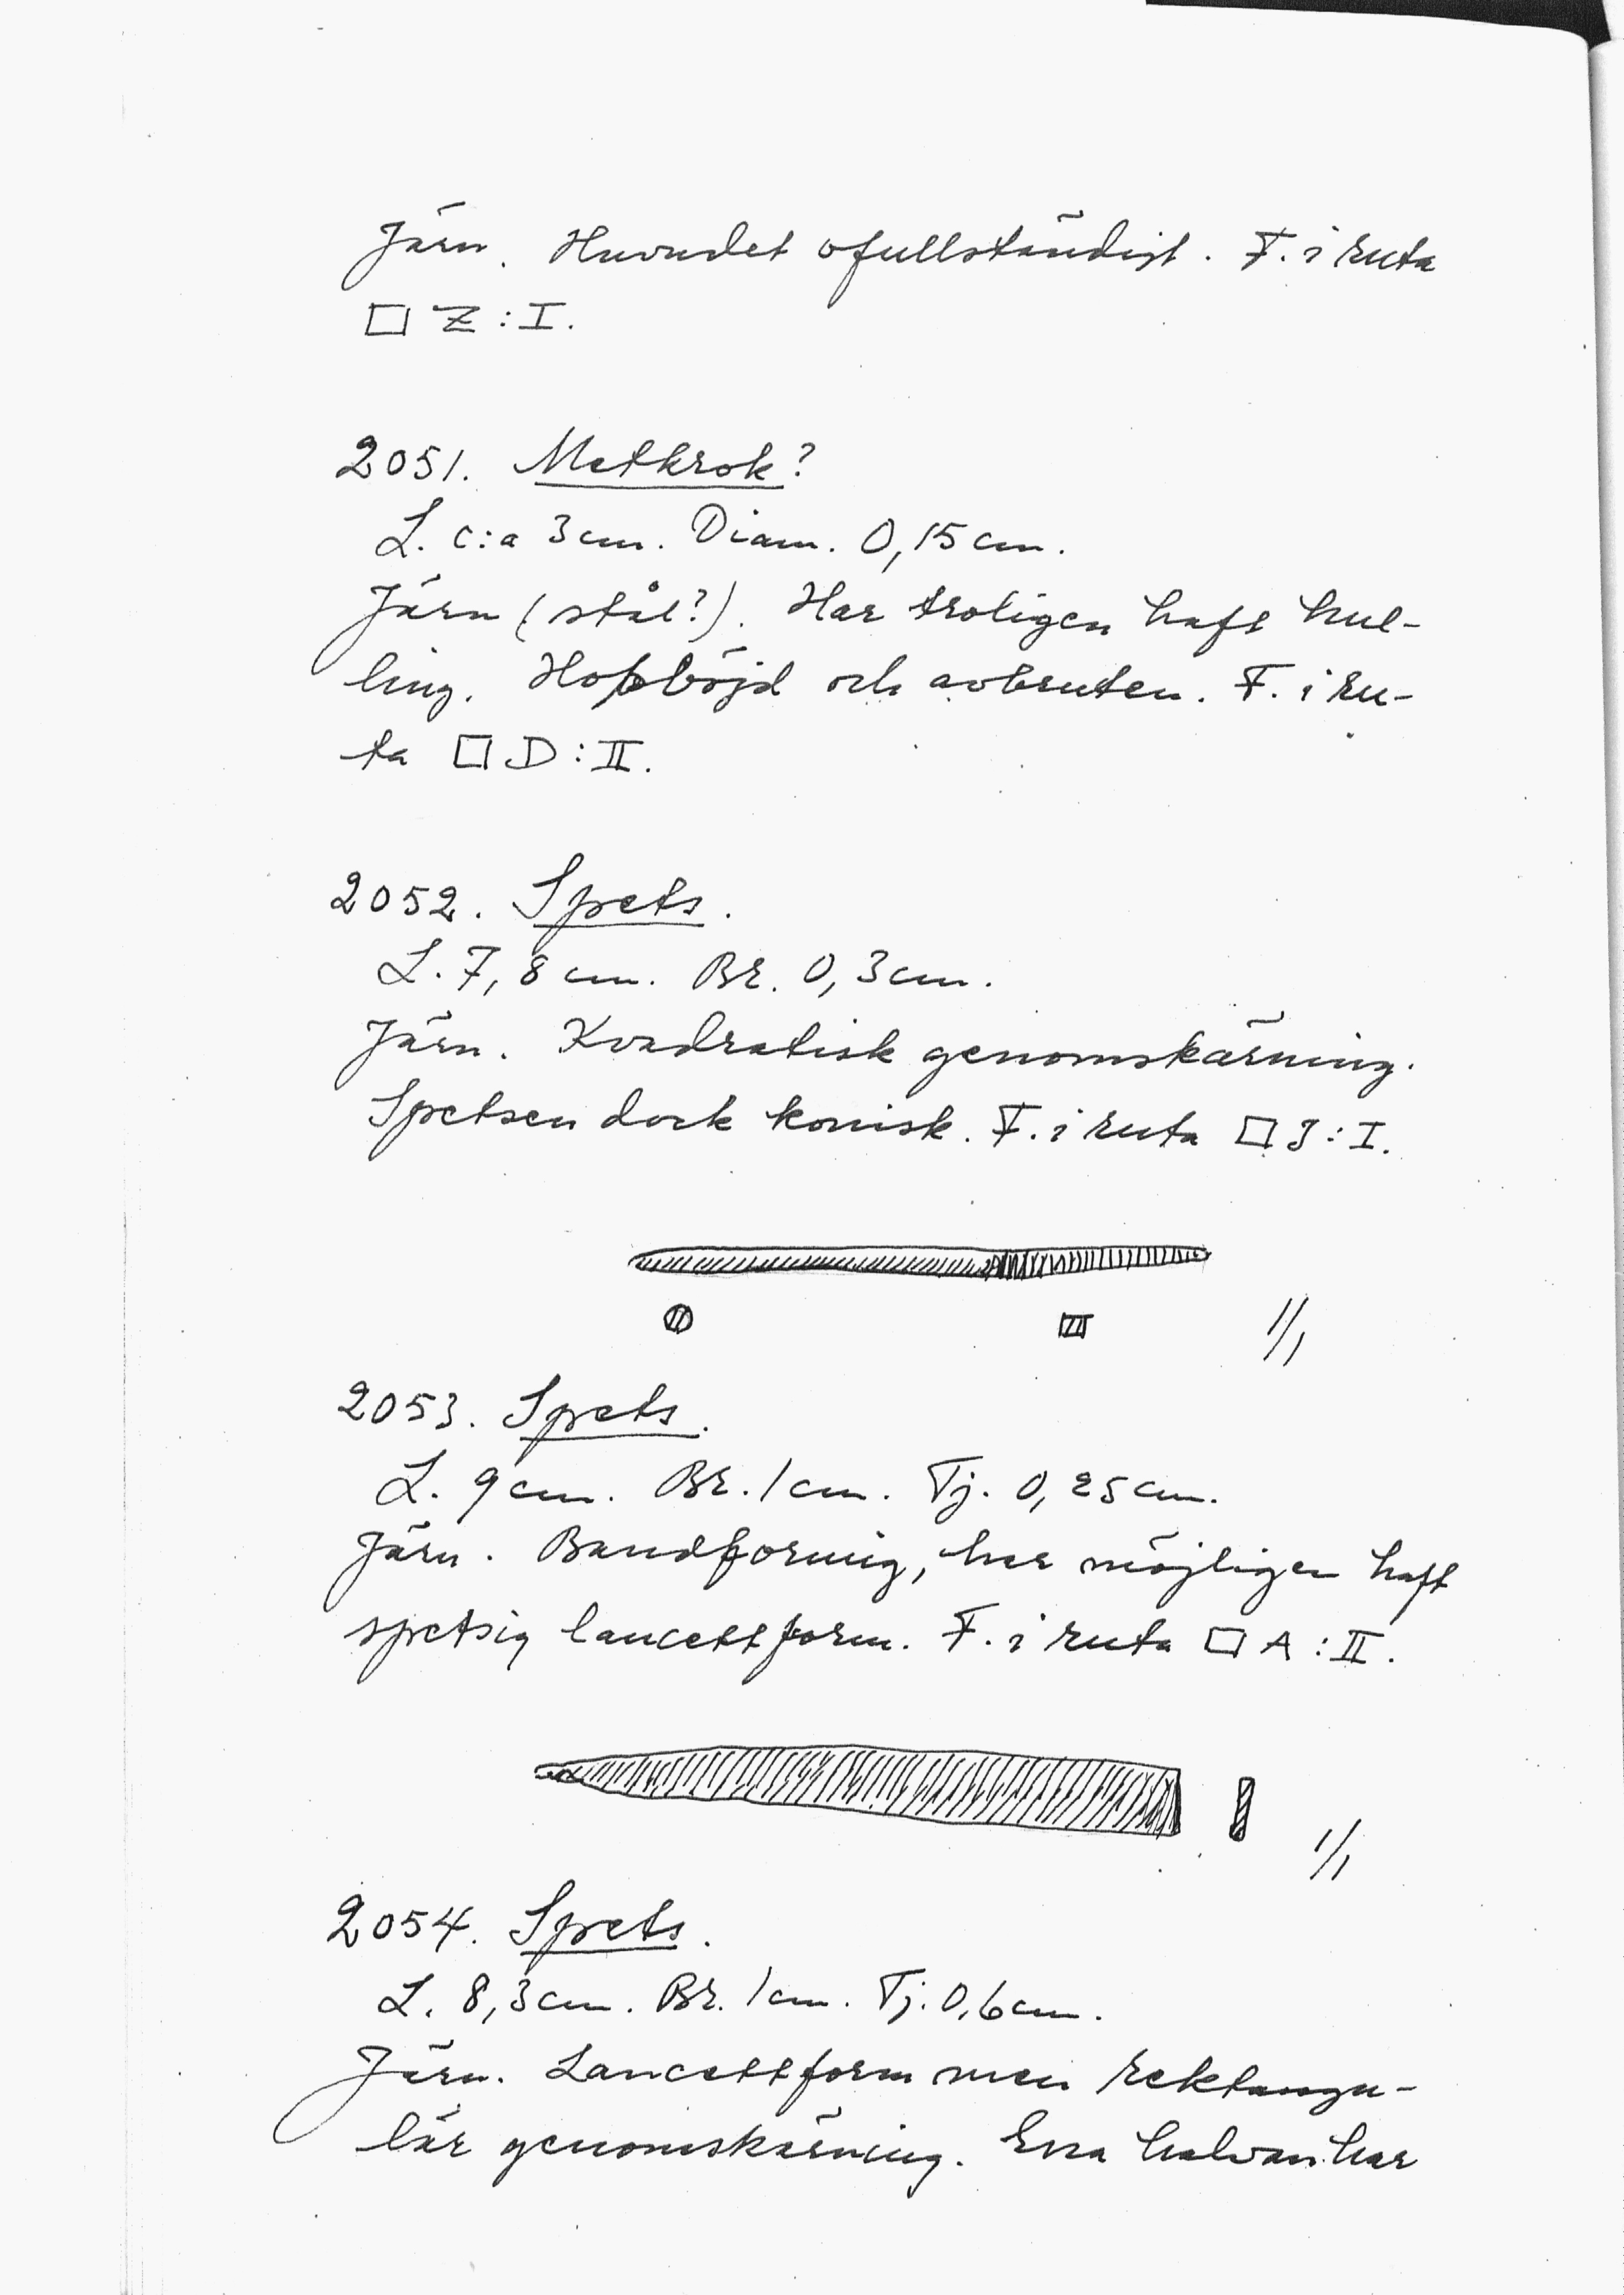 Järn. Huvudet ofullständigt. F. i ruta
□ Z : I.
2051. Metkrok?
L. c:a 3 cm. Diam. 0,15 cm.
Järn (stål?). Har troligen haft hul-
ling. Hopböjd och avbruten. F. i ru-
ta □ D : II.
2052. Spets.
L. 7,8 cm. Br. 0,3 cm.
Järn. Kvadratisk genomskärning.
Spetsen dock konisk. F. i ruta □ J : I.
1/1
2053. Spets.
L. 9 cm. Br. 1 cm. Tj. 0,25 cm.
Järn. Bandformig, har möjligen haft
spetsig lancettform. F. i ruta □ A : II.
1/1
2054. Spets.
L. 8,3 cm. Br. 1 cm. Tj. 0,6 cm.
Järn. Lancettform men rektangu-
lär genomskärning. Ena halvan har